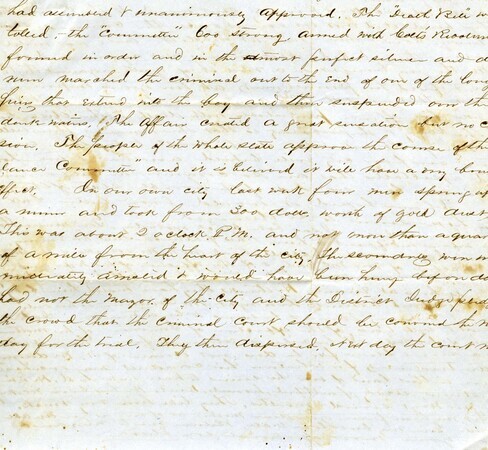 had assembled & unanimously approved. The "Death Bell" w
tolled, the "Committee" 600 strong armed with Colt's Revolver
formed in order and in the most perfect silence and d
marched the criminal out to the end of one of the long
piers that extend into the bay and then suspended over the
dark waters. The affair created a great sensation but no c
sion. The people of the whole state approve the course of the
lance Committee" and it is believed it will have a very ben
effect. In our own city last week four men sprang up
a miner and took from 300 dolls worth of gold dust
This was about 2 oclock P.M. and not more than a qua
of a mile from the heart of the city. The scoundrels were im
mediately arrested & would have been hung before d
had not the mayor of the city and the District Judge pled
the crowd that the criminal court should be convened the n
day for the trial. They then dispersed. Next day the court m